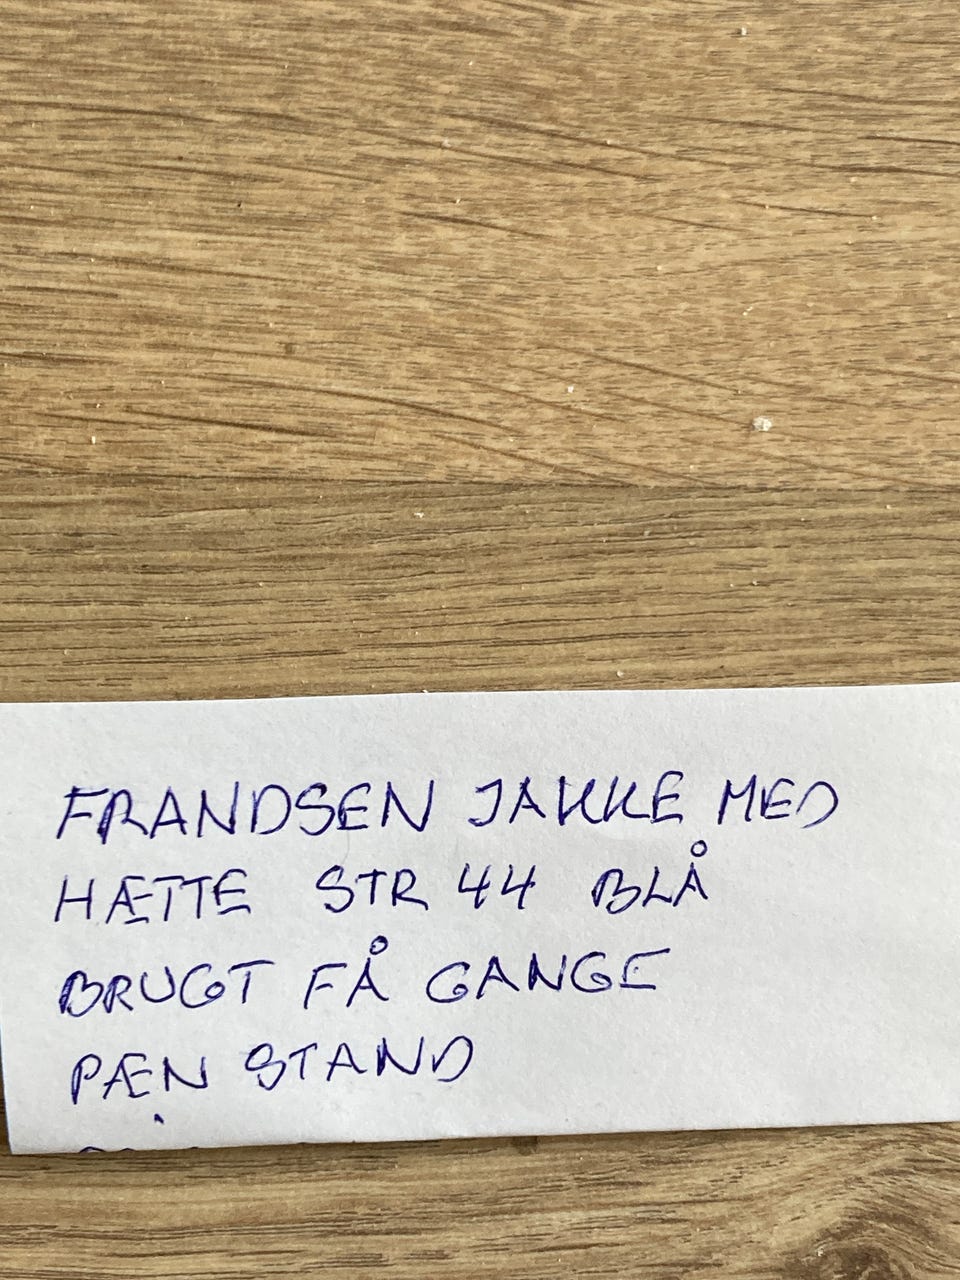 FRANDSEN JAKKE MED
HÆTTE STR 44 BLÅ
BRUGT FÅ GANGE
PÆN STAND